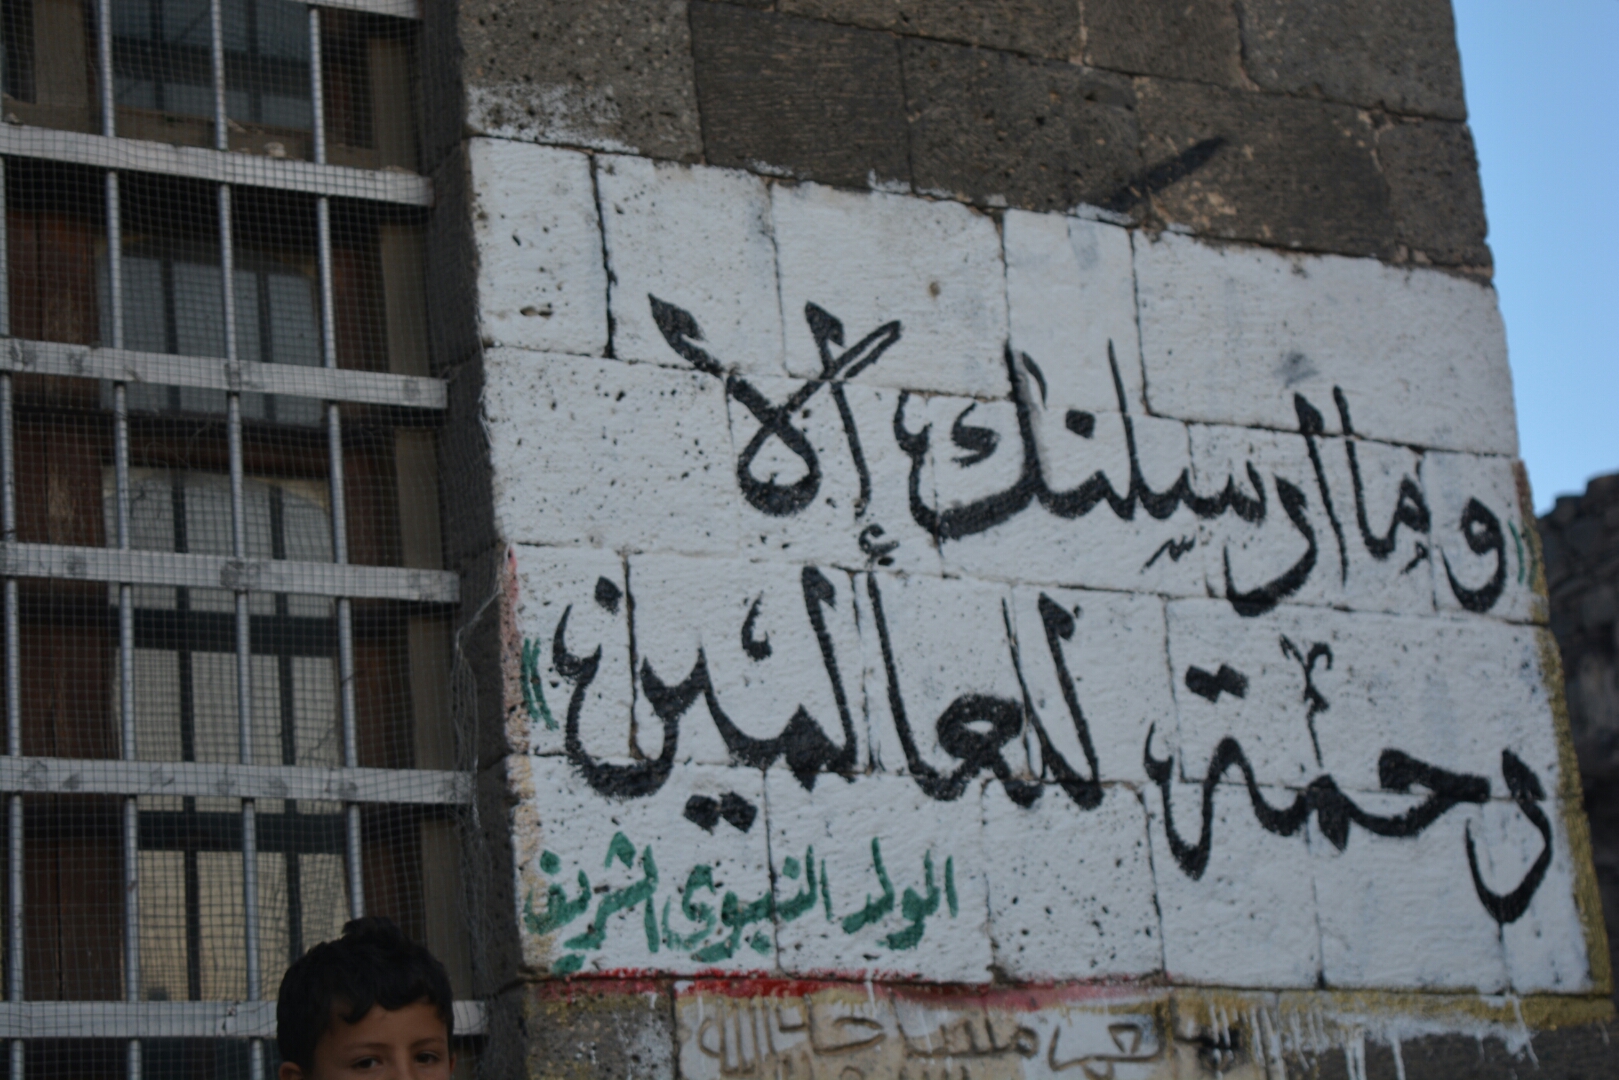 وما ارسلنك الا
رحمة للعالمين
المولد النبوي الشريف